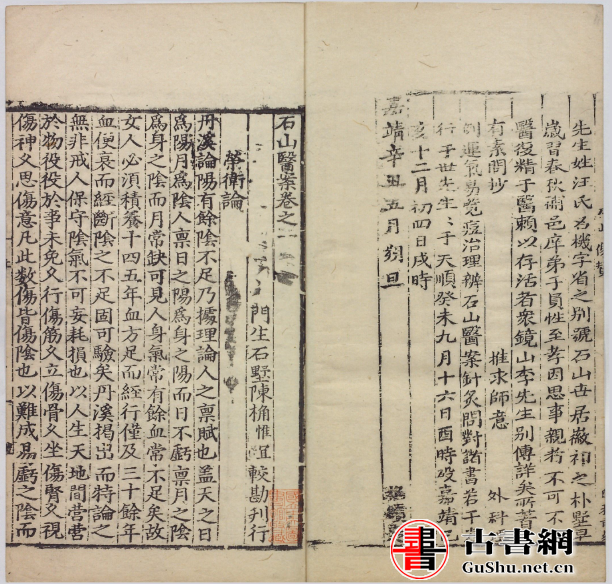 先生姓汪氏名機字省之别號石山世居徽祁之朴墅早
歲習春秋補邑庠弟子員性至孝因思事親者不可不
醫復精于醫賴以存活者衆鏡山李先生别傳詳矣所著
有素問抄 推求師意 外科
運氣易覽痘治理辨石山醫案針灸問對諸書若干
行于世先生生于天順癸未九月十六日酉時殁嘉靖己
亥十二月初四日戌時
嘉靖辛丑五月朔旦
石山醫案卷之
門生石墅陳桷惟宜較勘刊行
榮衛論
丹溪論陽有餘陰不足乃據理論人之稟賦也盖天之日
爲陽月爲陰人稟日之陽爲身之陽而日不虧稟月之陰
爲身之陰而月常缺可見人身氣常有餘血常不足矣故
女人必須積養十四五年血方足而經行僅及三十餘年
血便衰而經斷陰之不足固可驗矣丹溪揭出而特論之
無非戒人保守陰氣不可妄耗損也以人生天地間營營
於物役役於事未免久行傷筋久立傷骨久坐傷腎久視
傷神久思傷意凡此數傷皆傷陰也以難成易虧之陰而
古書網
Gucn.com
www.gushu.net.cn